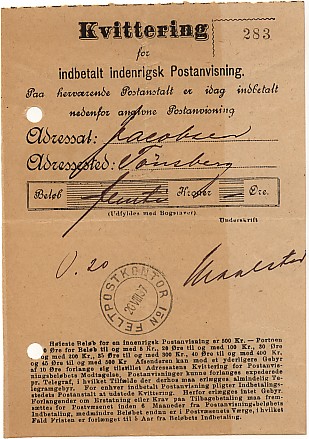 Kvittering
283
for
indbetalt indenrigsk Postanvisning.
Paa herværende Postanstalt er idag indbetalt
nedenfor angivne Postanvisning
Adressat: Jacobsen
Adressested: Tønsberg
Beløb Kroner Øre.
(Udfyldes med Bogstaver)
Underskrift
0.20
FELTPOSTKONTOR
Høieste Beløb for en innenrigsk Postanvisning er 500 Kr. — Portoen
Øre for Beløb til og med 5 Kr., 20 Øre til og med 100 Kr., 30 Øre
til og med 200 Kr., 35 Øre til og med 300 Kr., 40 Øre til og med 400 Kr.
og 45 Øre til og med 500 Kr. Afsenderen kan med et yderligere Gebyr
af 10 Øre forlange sig tilstillet Adressatens Kvittering for Postanvis-
ningsbeløbets Modtagelse. Postanvisninger kan forlanges expederede
pr. Telegraf, i hvilket Tilfælde der derhos maa erlægges almindelig Te-
legramgebyr. For enhver indbetalt Postanvisning pligter Indbetalings-
stedets Postanstalt at udstede Kvittering. Intet Gebyr erlægges herfor.
Krav om Erstatning eller Krav paa Tilbagebetaling maa frem-
sættes for Postvæsenet inden 6 Maaneder fra Postanvisningsbeløbets
Indbetaling, medmindre Beløbet endnu er i Postvæsenets Værge, i hvilket
Fald Fristen er forlænget til 5 Aar fra Beløbets Indbetaling.